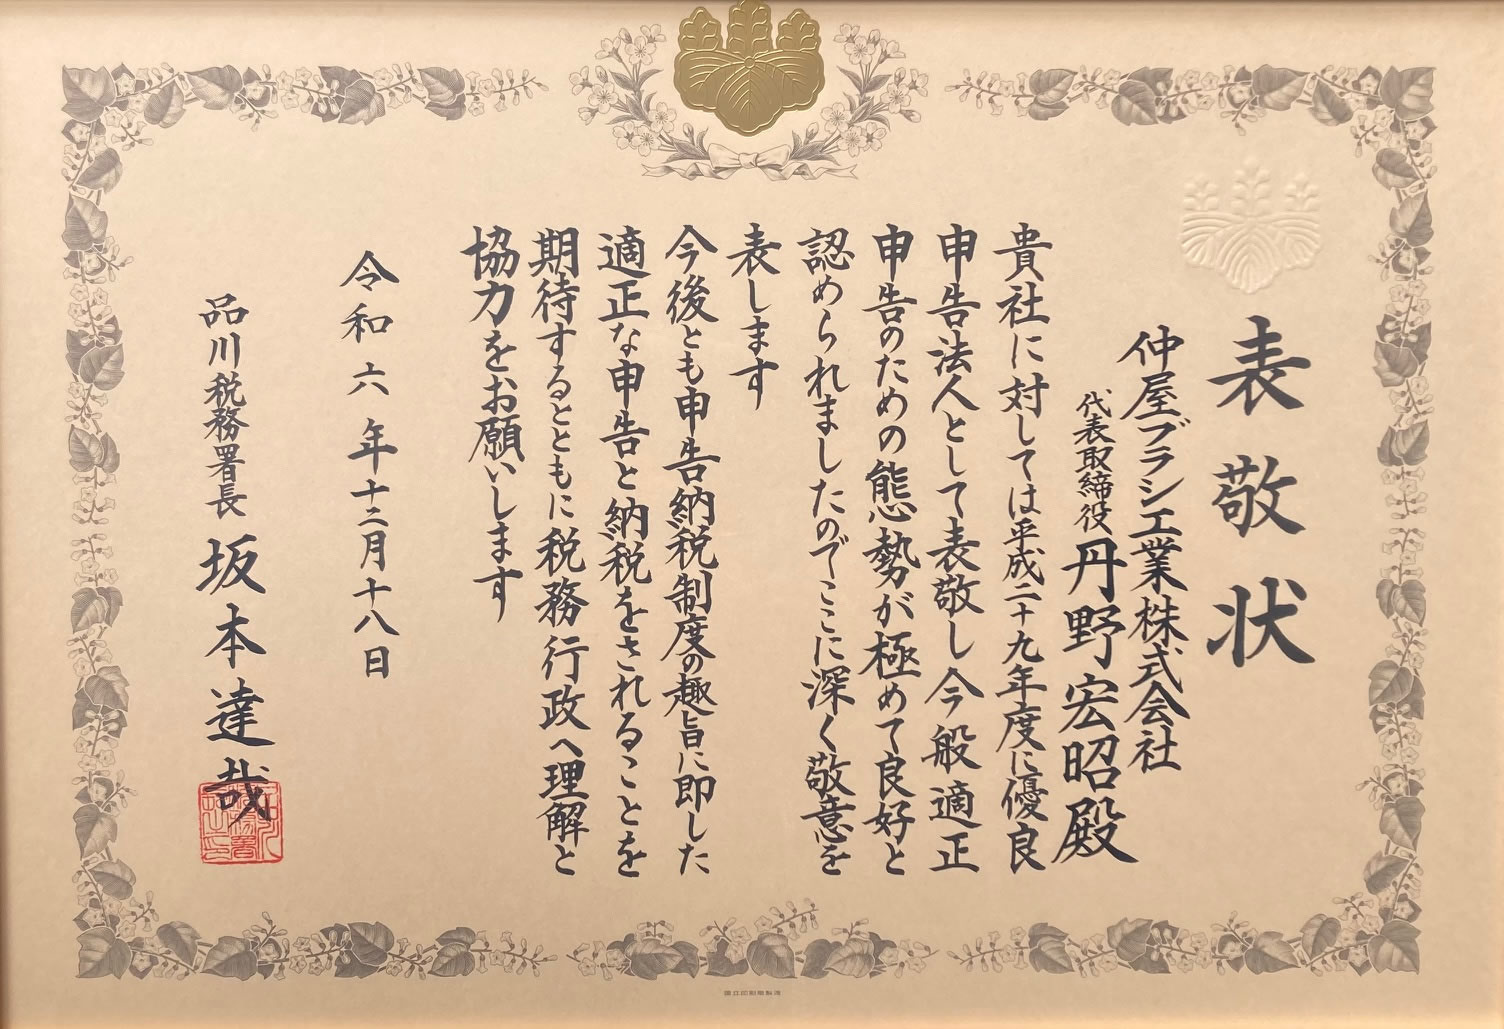 表敬状
仲屋ブラシ工業株式会社
代表取締役 丹野宏昭殿
貴社に対しては平成二十九年度に優良
申告法人として表敬し今般適正
申告のための態勢が極めて良好と
認められましたのでここに深く敬意を
表します
今後とも申告納税制度の趣旨に即した
適正な申告と納税をされることを
期待するとともに税務行政へ理解と
協力をお願いします
令和六年十二月十八日
品川税務署長 坂本達哉
国立印刷局製造